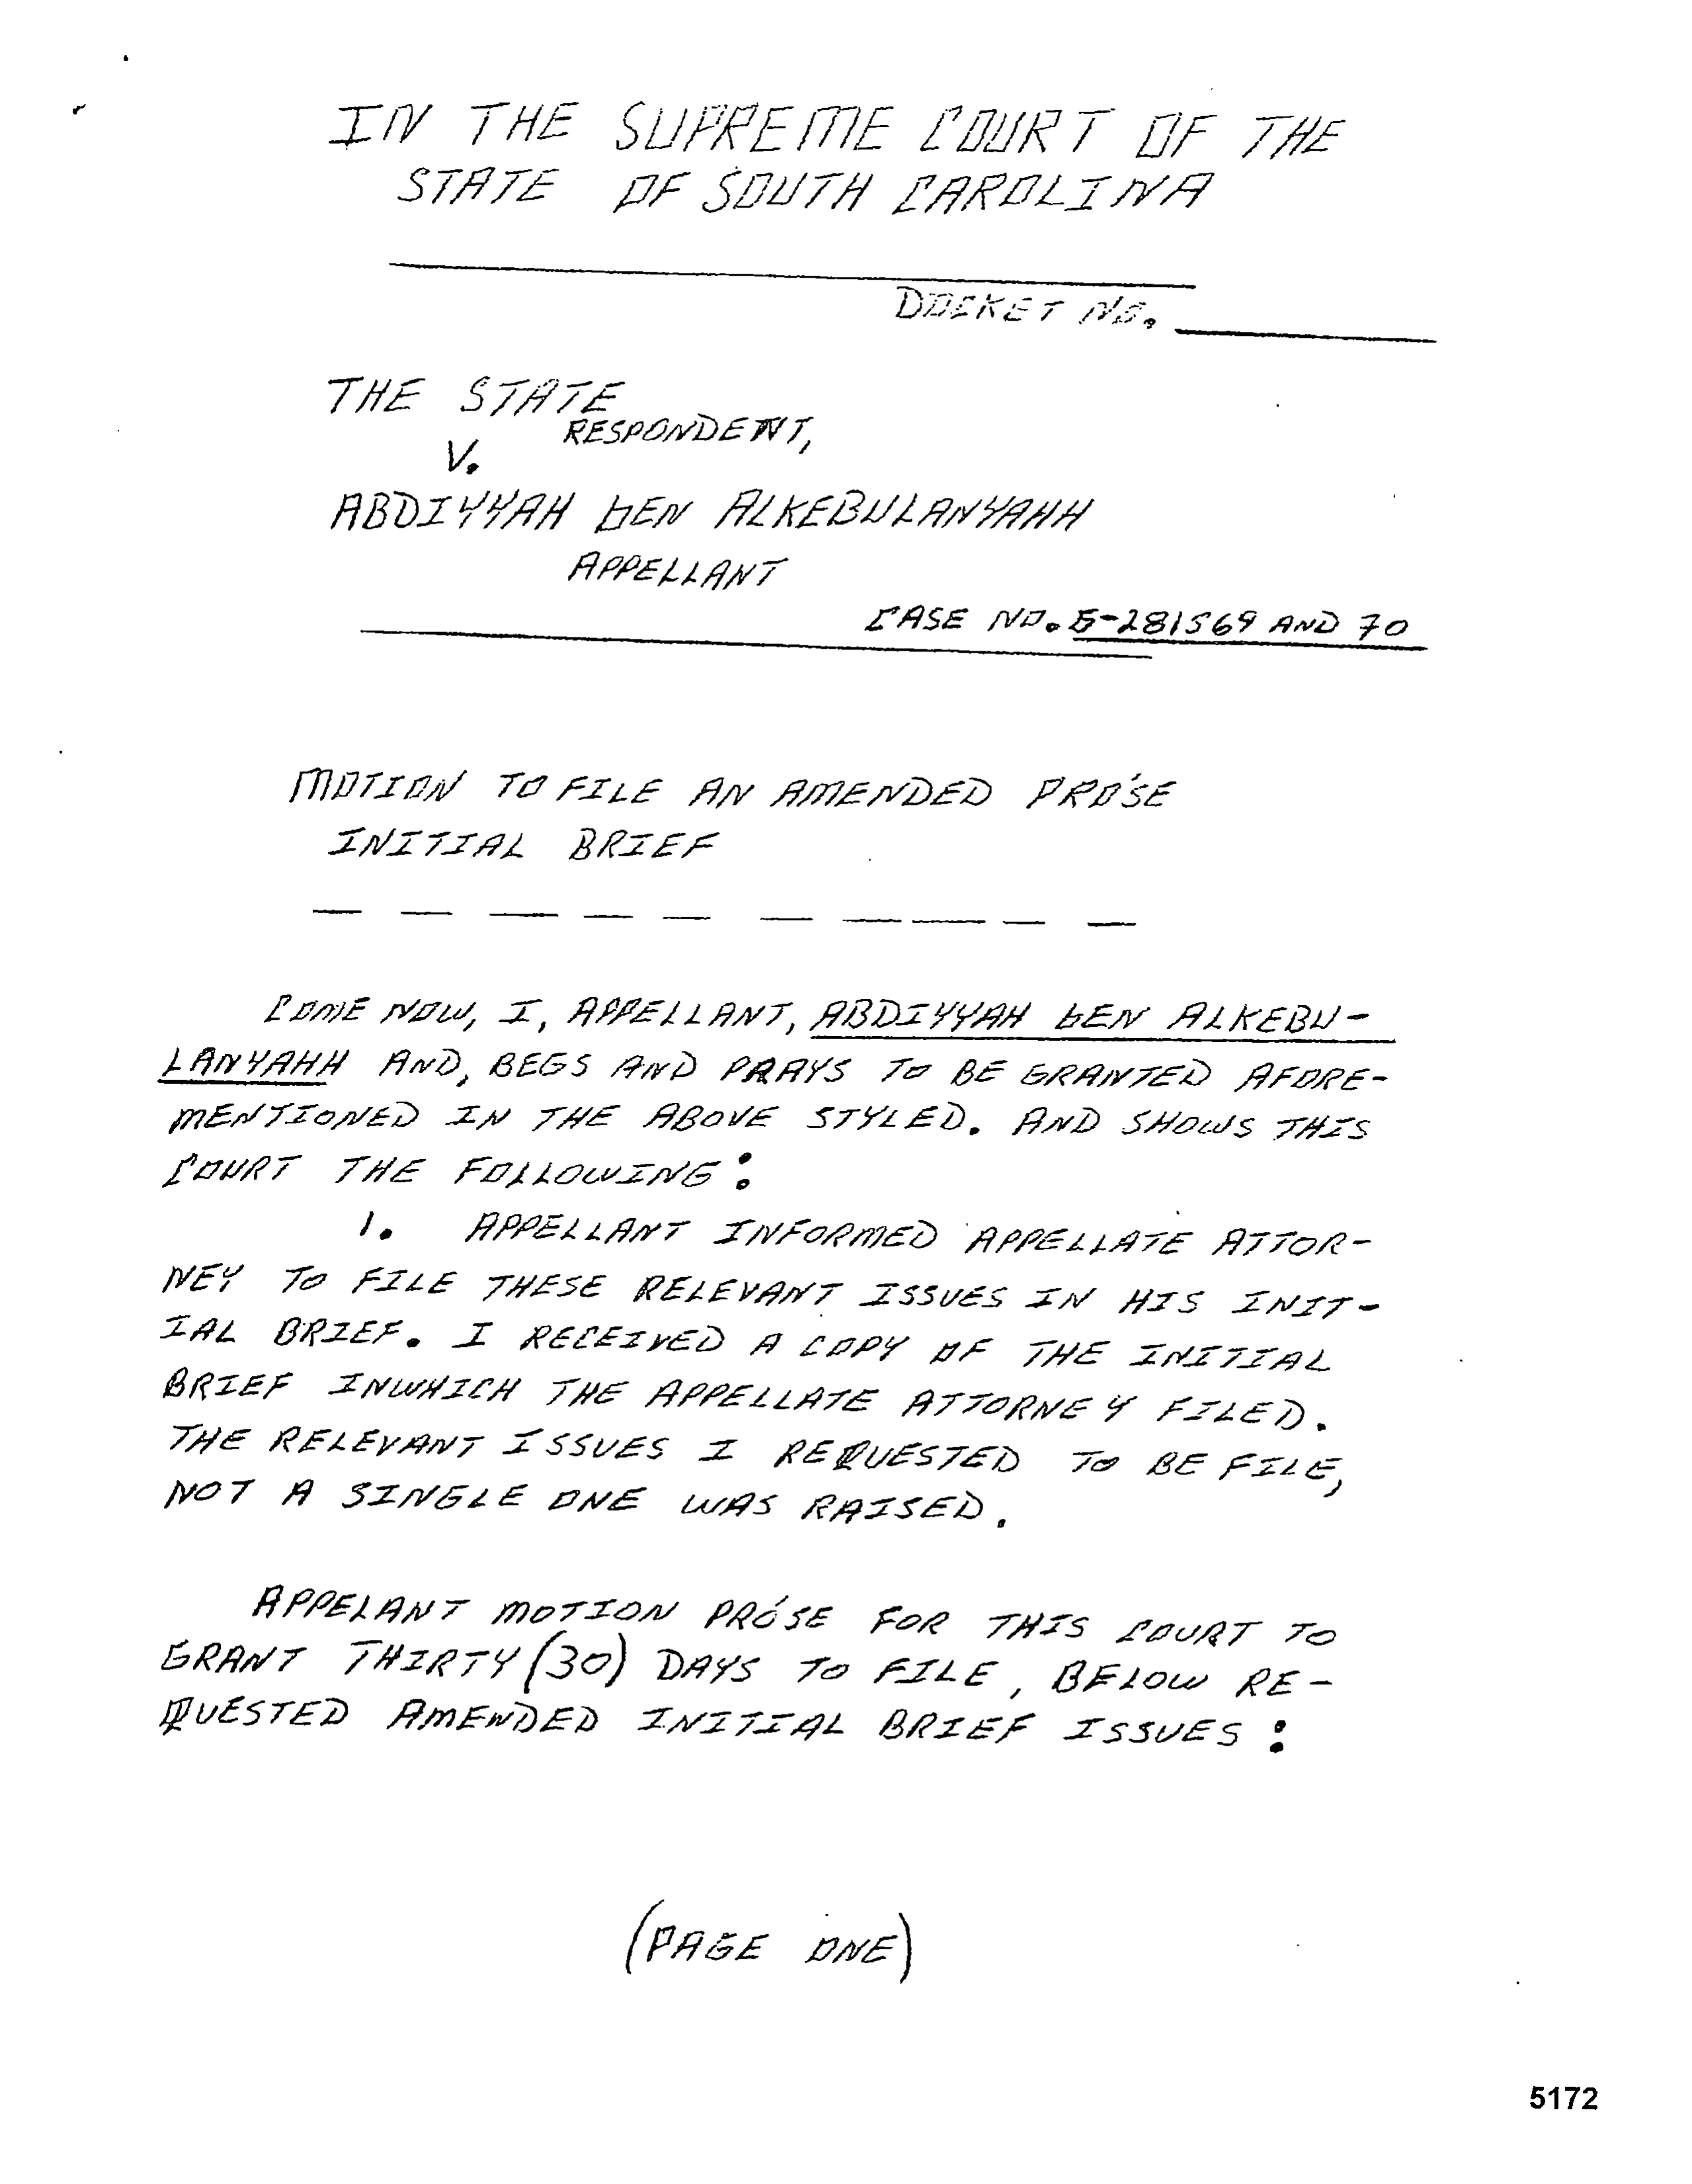 IN THE SUPREME COURT OF THE
STATE OF SOUTH CAROLINA
DOCKET NO.
THE STATE
RESPONDENT,
V.
ABDIYYAH bEN ALKEBULANYAHH
APPELLANT
CASE NO. G-281569 AND 70
MOTION TO FILE AN AMENDED PRO'SE
INITIAL BRIEF
COME NOW, I, APPELLANT, ABDIYYAH bEN ALKEBU-
LANYAHH AND, BEGS AND PRAYS TO BE GRANTED AFORE-
MENTIONED IN THE ABOVE STYLED. AND SHOWS THIS
COURT THE FOLLOWING:
1. APPELLANT INFORMED APPELLATE ATTOR-
NEY TO FILE THESE RELEVANT ISSUES IN HIS INIT-
IAL BRIEF. I RECEIVED A COPY OF THE INITIAL
BRIEF INWHICH THE APPELLATE ATTORNEY FILED.
THE RELEVANT ISSUES I REQUESTED TO BE FILE,
NOT A SINGLE ONE WAS RAISED.
APPELANT MOTION PRO'SE FOR THIS COURT TO
GRANT THIRTY (30) DAYS TO FILE, BELOW RE-
QUESTED AMENDED INITIAL BRIEF ISSUES:
(PAGE ONE)
5172